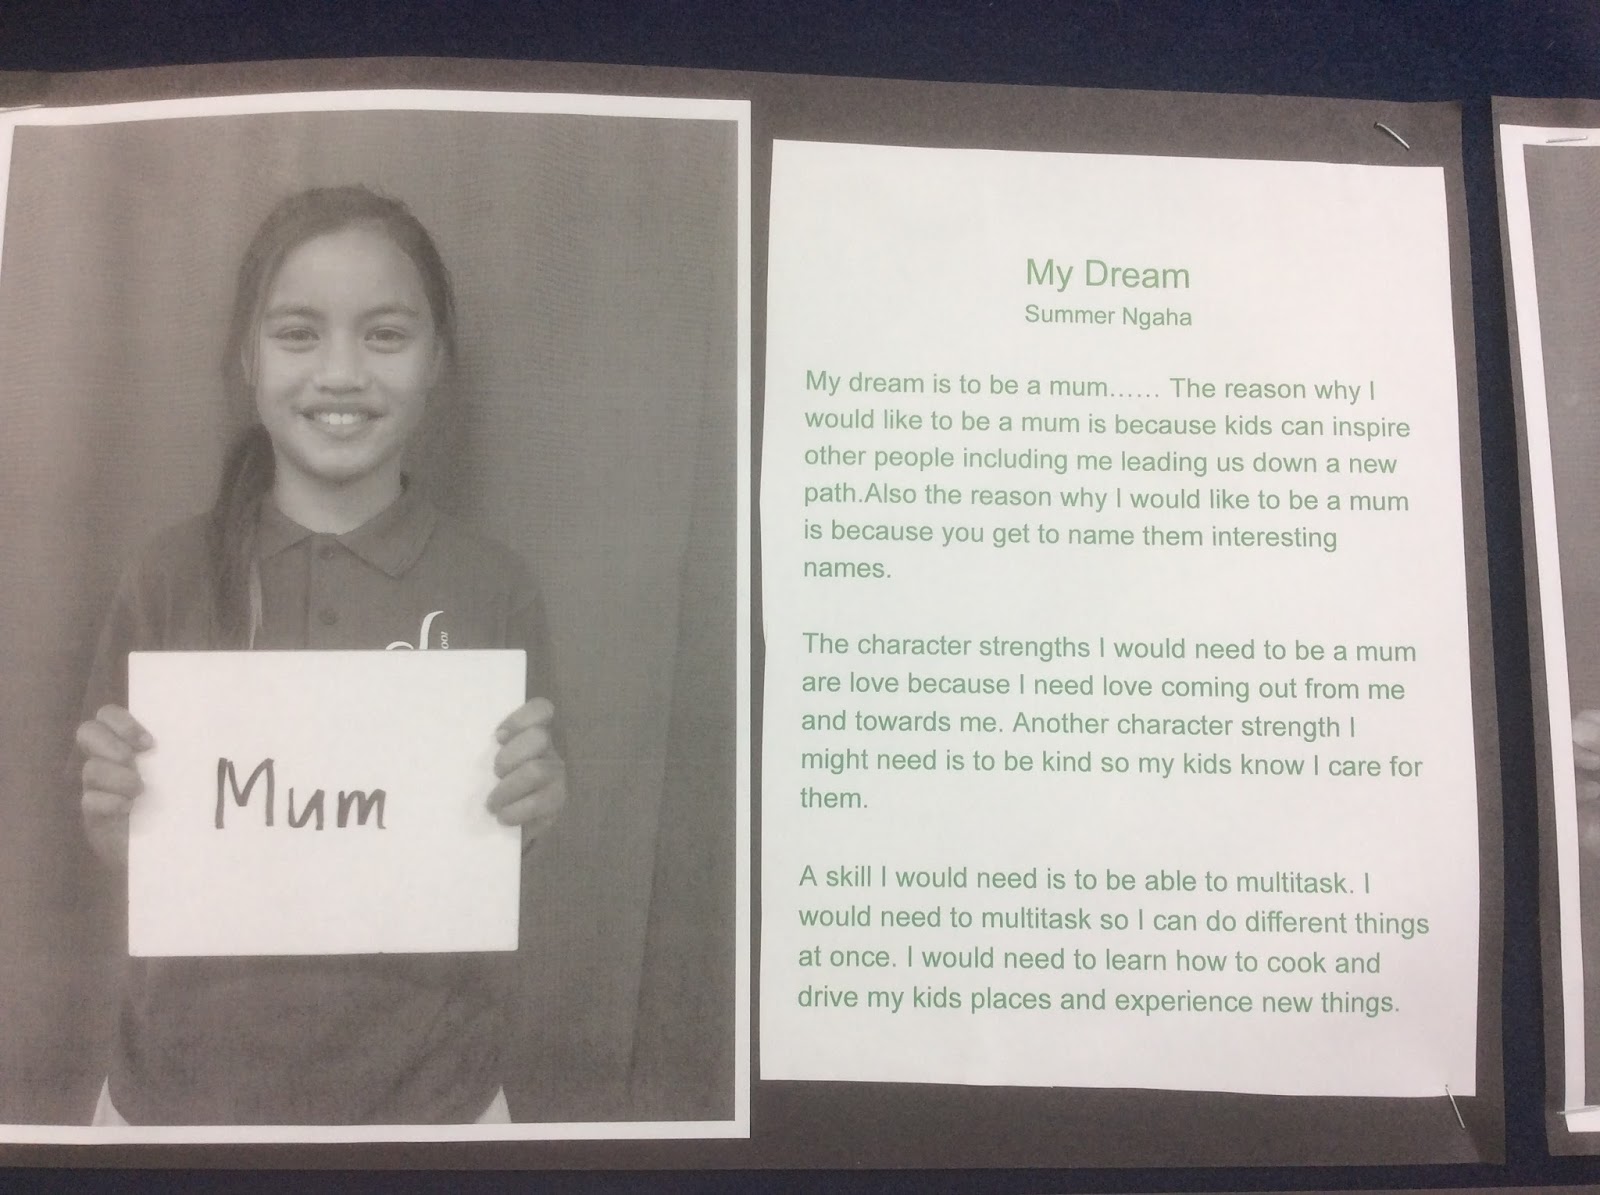 Mum
My Dream
Summer Ngaha
My dream is to be a mum...... The reason why I
would like to be a mum is because kids can inspire
other people including me leading us down a new
path.Also the reason why I would like to be a mum
is because you get to name them interesting
names.
The character strengths I would need to be a mum
are love because I need love coming out from me
and towards me. Another character strength I
might need is to be kind so my kids know I care for
them.
A skill I would need is to be able to multitask. I
would need to multitask so I can do different things
at once. I would need to learn how to cook and
drive my kids places and experience new things.